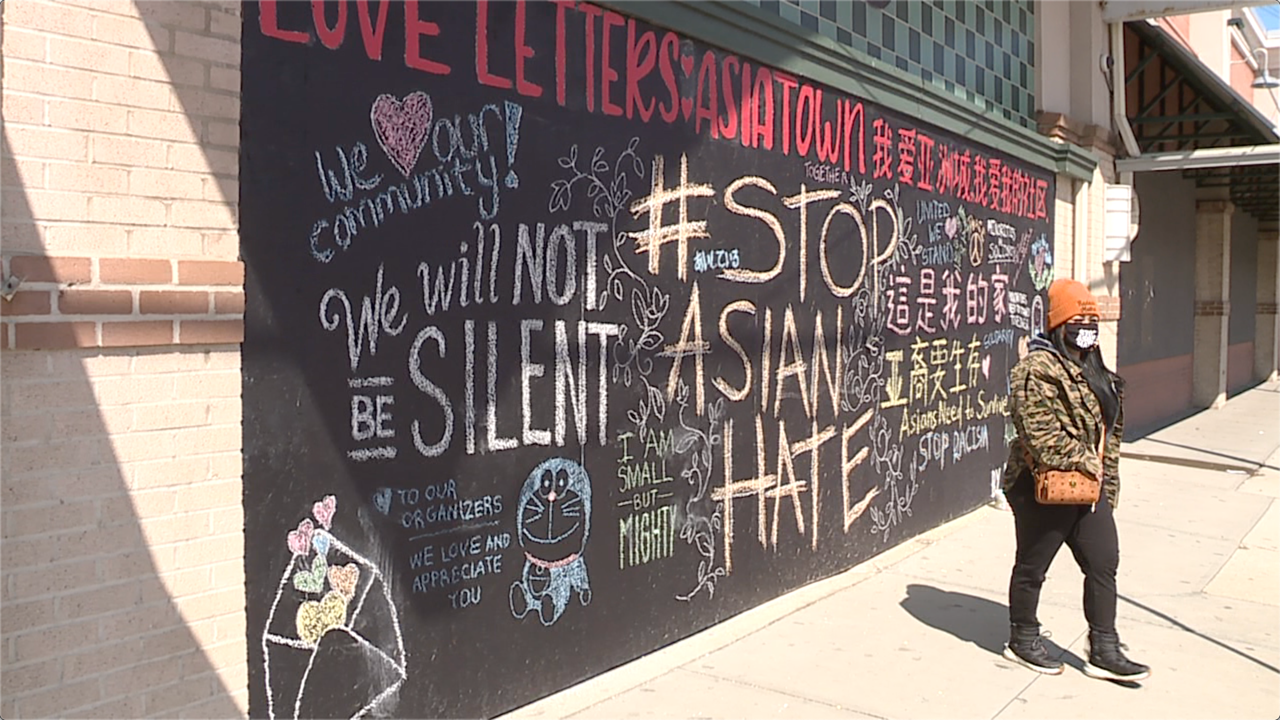 LOVE LETTERS: ASIATOWN 我爱亚洲城,我爱我的社区
We our
community!
We will NOT
BE SILENT
TO OUR
ORGANIZERS
WE LOVE AND
APPRECIATE
YOU
I AM
SMALL
—BUT—
MIGHTY
#STOP
ASIAN
HATE
TOGETHER
UNITED
WE
STAND
這是我的家
SOLIDARITY
亚裔要生存
Asians Need to Survive
STOP RACISM